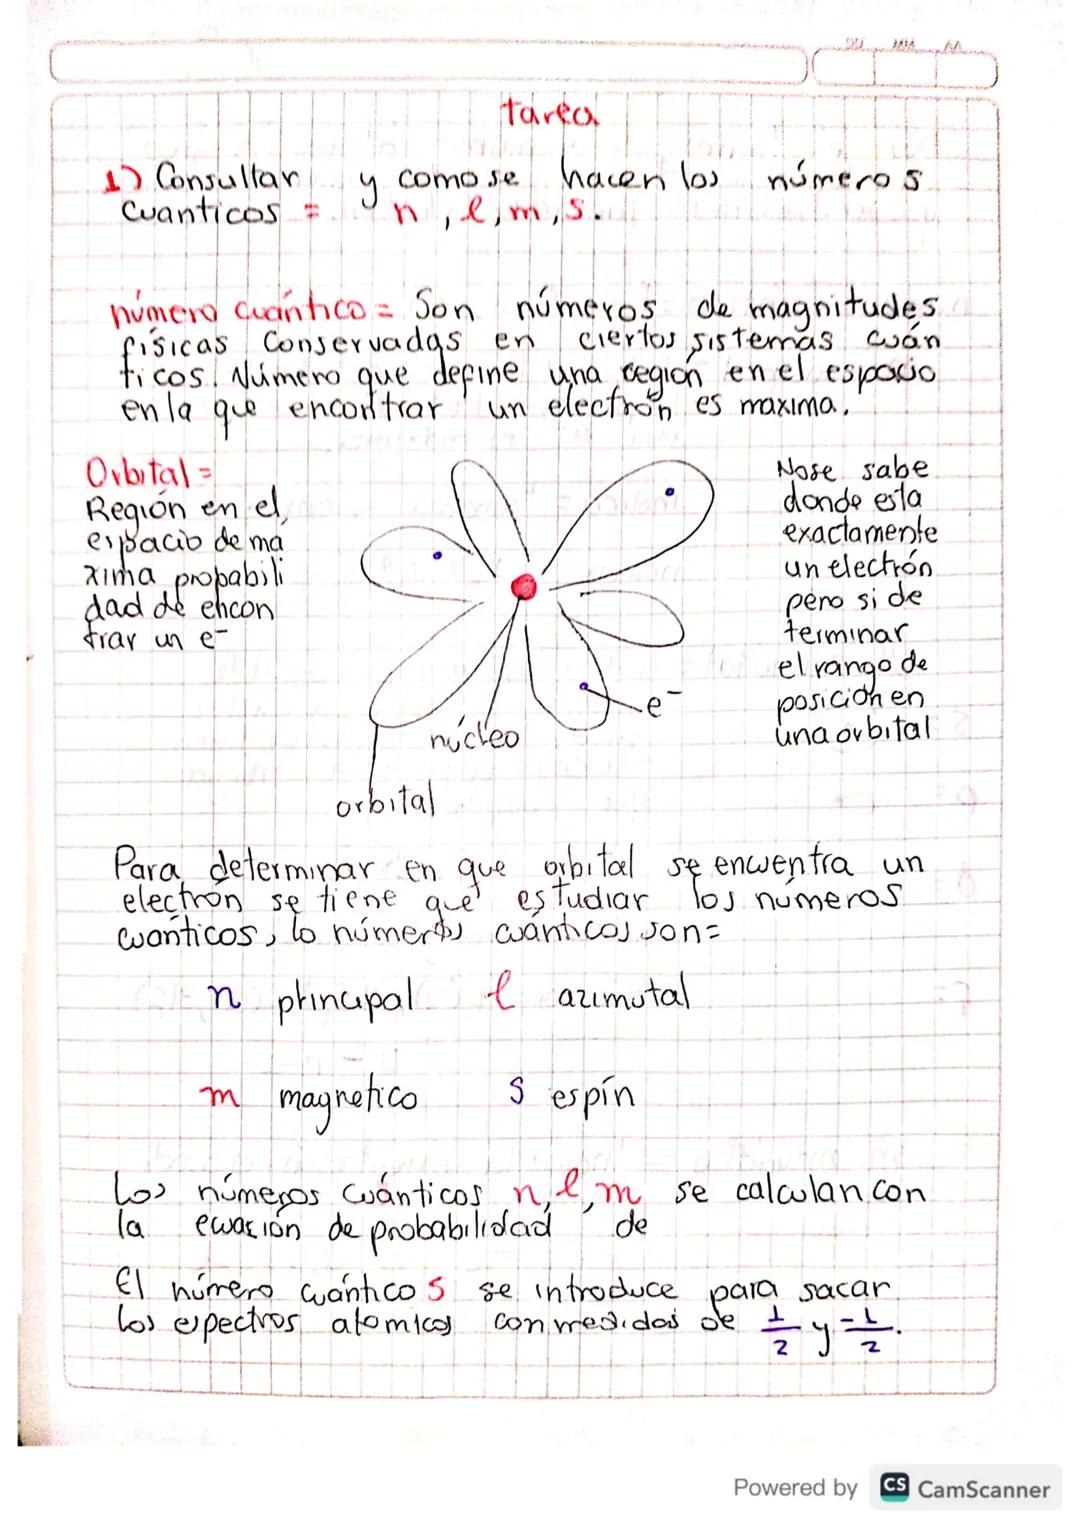 DD MM AA
tarea
1) Consultar y como se hacen los números
Cuanticos = n, l, m, s.
número cuántico = Son números de magnitudes
físicas Conservadas en ciertos sistemas cuán
ticos. Número que define una region en el espacio
en la que encontrar un electrón es maxima.
Orbital =
Región en el
espacio de ma
xima probabili
dad de encon
trar un e-
Nose sabe
donde esta
exactamente
un electrón
pero si de
terminar
el rango de
posición en
una orbital
e-
núcleo
orbital
Para determinar en que orbital se encuentra un
electrón se tiene que estudiar los números
cuánticos, lo números cuánticos son=
n principal l azimutal
m magnetico s espín
Los números Cuánticos n, l, m se calculan con
la ecuación de probabilidad de
El número cuántico s se introduce para sacar
los espectros atomicos con medidas de 1/2 y -1/2.
Powered by CS CamScanner